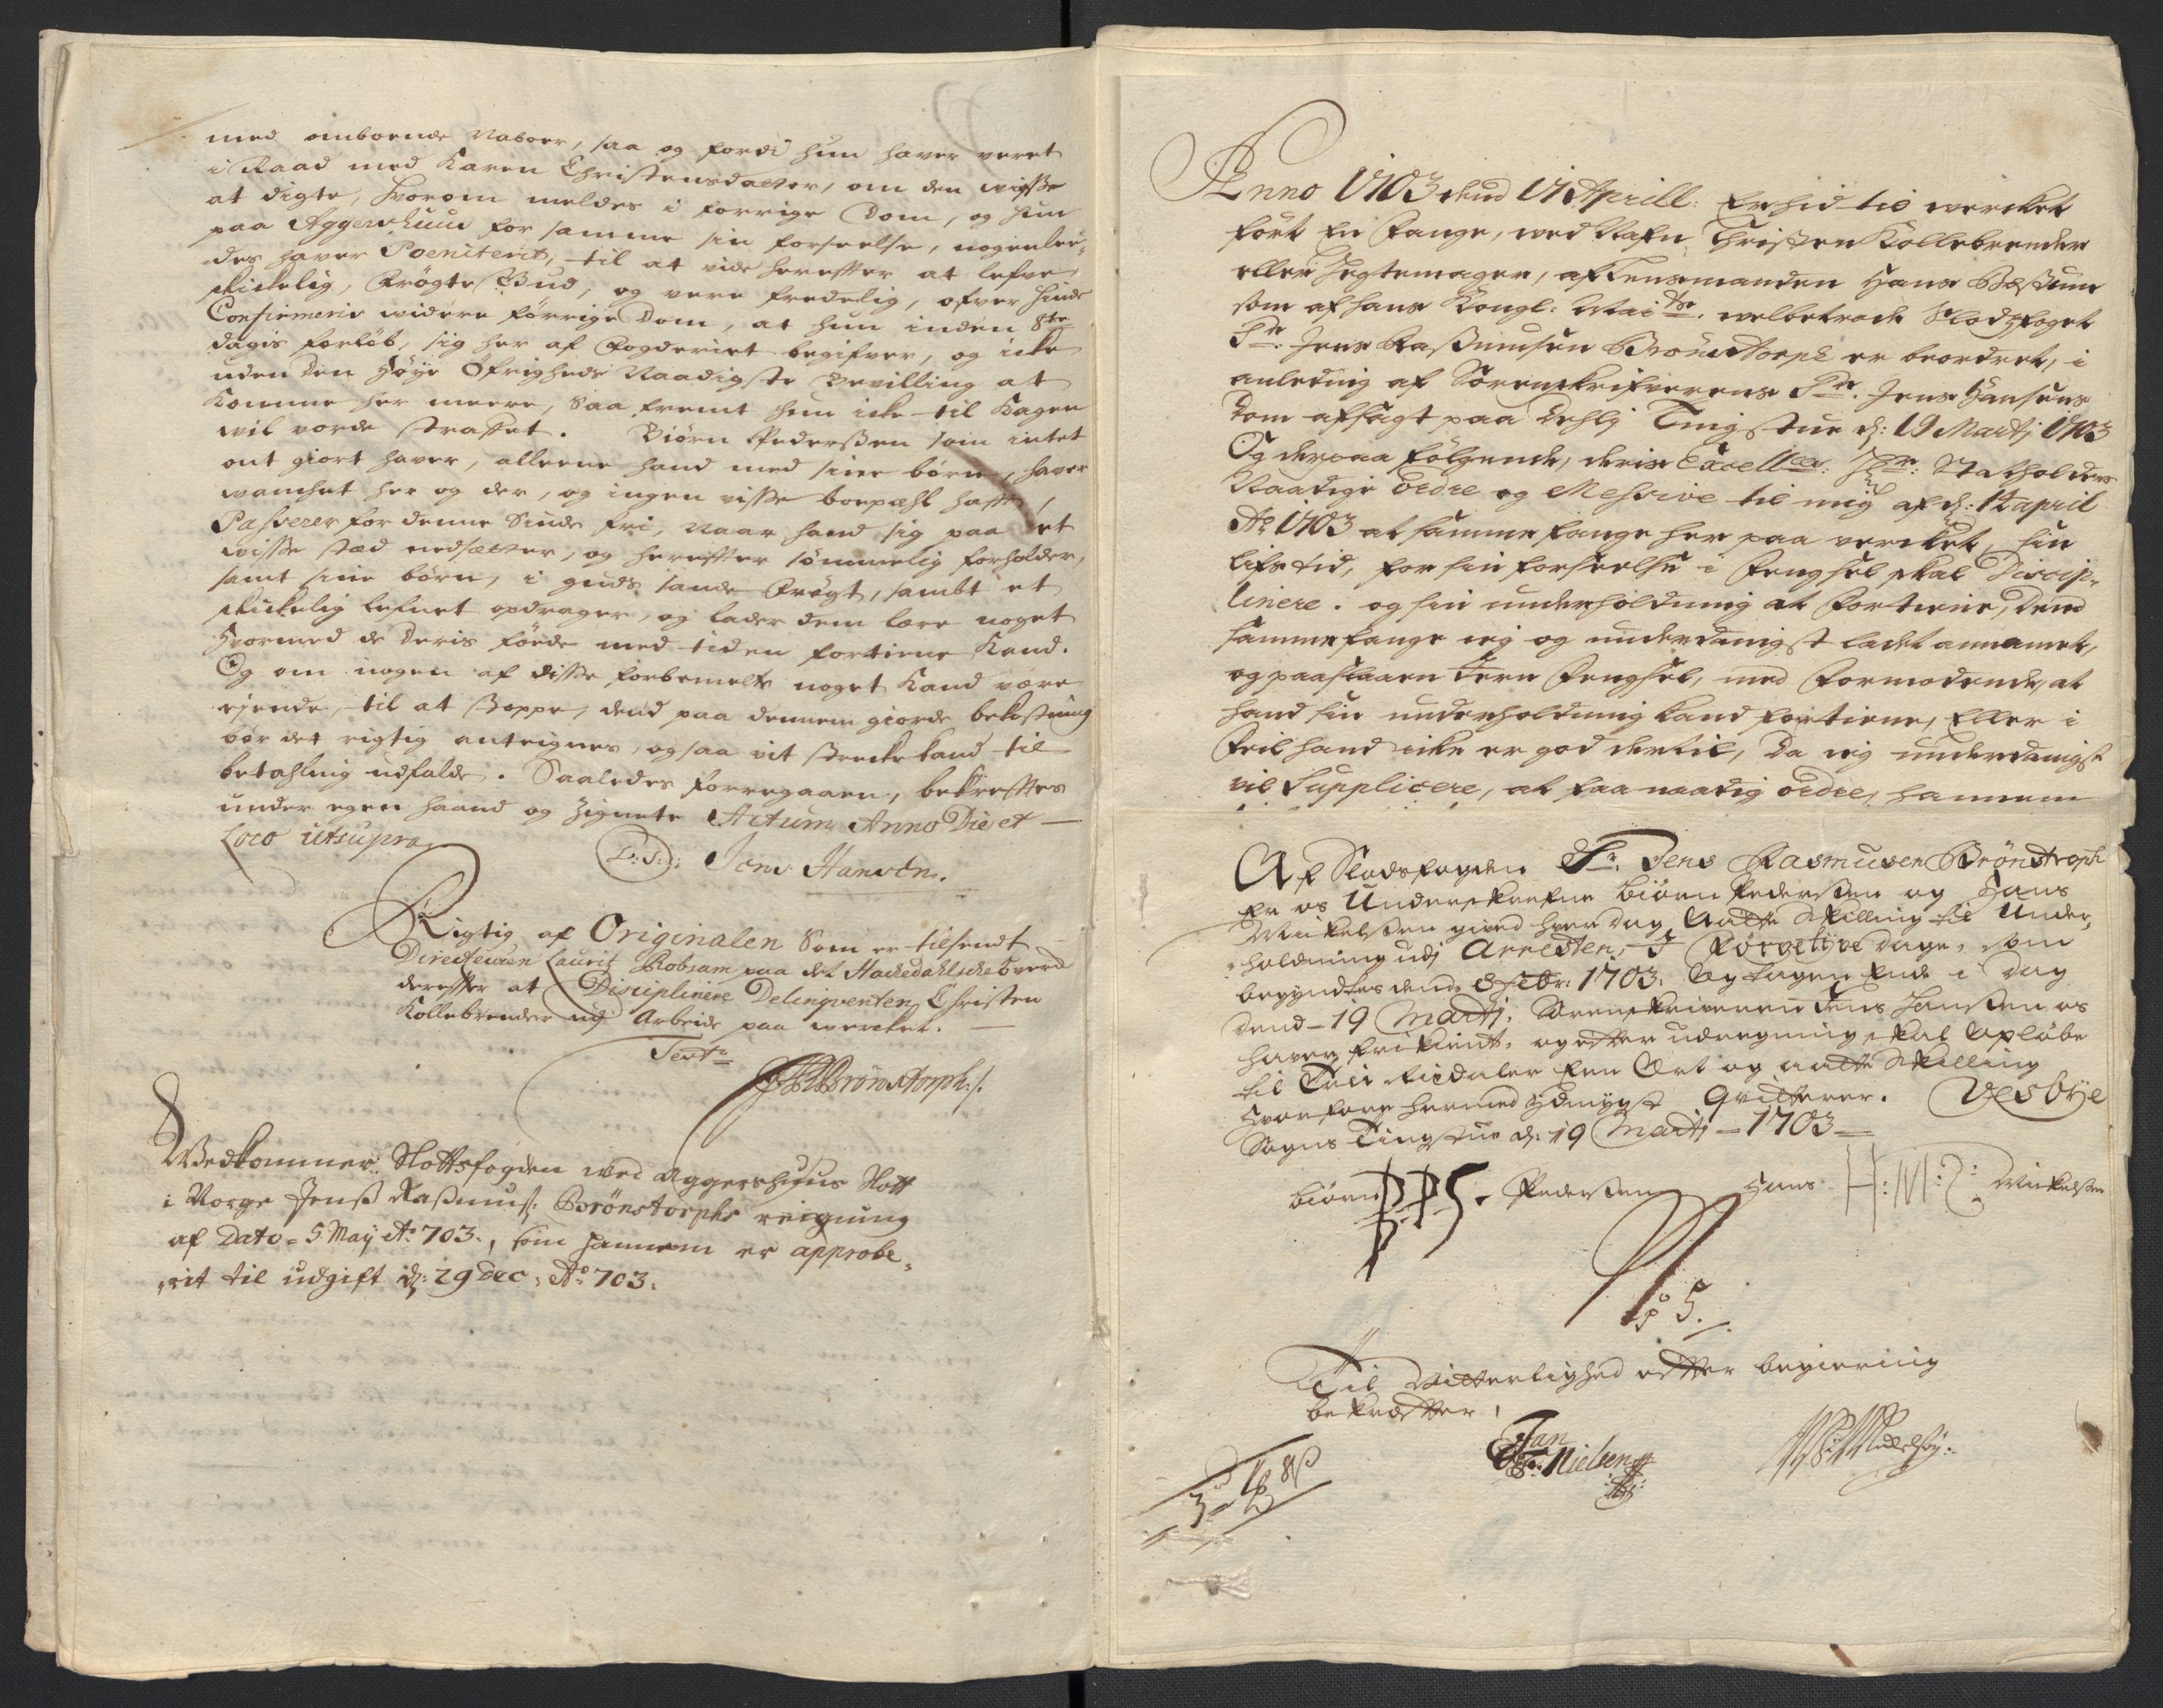 med omboende Naboer, saa og fordi hun haver veret
i Raad med Karen Christensdatter, om den wisse
at digte, hvorom meldes i forrige Dom, og hun
paa Aggershuus for samme sin forseelse, nogenlee-
des haver Poeniterit, til at vide herefter at lefve
skickelig, frögte Gud, og vere fredelig, ofver hinde
Confirmeris widere forrige Dom, at hun inden 8te
dagis forlöb, sig her af Fogderiet begifver, og icke
uden den Höye Öfrigheds Naadigste Bevilling at
komme her meere, Saa fremt hun icke til Kagen
wil vorde straffet. Biörn Pedersen som intet
ont giort haver, alleene hand med sine börn, haver
wancket her og der, og ingen visse boepæhl hafft,
Passerer for denne Sinde fri, Naar hand sig paa et
wisse stæd nedsætter, og herefter sömmelig forholder,
samt sine börn, i guds sande Frögt, sambt et
skickelig lefnet opdrager, og lader dem lære noget
hvormed de deris föede med tiden fortiene kand.
Og om nogen af disse forbemelte noget kand være
ejende, til at stoppe, dend paa dennem giorde bekostning
bör det rigtig anteignes, og saa vit strecke kand til
betahling udfalde. Saaledes forregaaen, bekreftes
under egen haand og Zignete Actum Anno Die et
Loco utsupra.
L: S: Jens Hansen.
Rigtig af Originalen Som er tilsendt
Directeuren Laurits Robsam paa det Hackedahlske verck
derefter at Disciplinere Delinqventen Christen
Kollebrender udj Arbeide paa wercket.
Test:
JRBrönstorph:/.
Wedkommer Slottsfogden wed Aggershuus Slott
i Norge Jenss Rassmuss: Brönstorphs reigning
af Dato 5 Maij Ao 703., som hannem er approbe-
rit til udgift d: 29 Dec: Ao 703.
Anno 1703 dend 17 Aprill: Er hid til wercket
fört En Fange, wed Nafn Christen Kollebrender
eller Hegtemager, af Lensmanden Hans
som af hans Kongl: Mai:ts welbetrode Slodsfoget
Sr. Jens Rassmusen Brönstorph er beordret, i
anledning af Sorenskrifverens Sr. Jens Hansens
dom afsagt paa Tingstue d: 19 Martj 1703
Og derpaa fölgende, deris Excell:ce Hr: Statholders
Naadige ordre og Messive til mig af d: 14 april
Ao 1703 at samme fange her paa vercket, sin
lifs tid, for sin forseelse i Fengsel skal Discip-
linere. og sin underholdning at fortiene, Dend
samme fange ieg og underdanigst ladet annamet,
og paaslaaen Jern Fengsel, med Formodende, at
hand sin underholdning kand fortiene, Eller i
Feil hand icke er god dertil, da ieg underdanigst
vil Supplicere, at faa naadig ordre, hannem
Af Slodsfogden Sr. Jens Rasmusen Brönstroph
Er os Underskrefne Biörn Pedersen og Hans
Mickelsen gived hver dag Aatte Skilling til Under-
holdning udj Arresten, J Förretijve dage, som
begyndtes dend 8 Febr: 1703. Og tager Ende i Dag
dend 19 Martj. Sorenskriveren Jens Hansen os
haver frikient, og efter udregning skal beløbe
til Trei Rixdaler Een Ort og aatte Skilling
hvorfore hermed ydmygst Qvitterer.
Sogns Tingstue d: 19 Martj 1703
Biörn BPS. Pedersen Hans H:M:S: Mickelsen
No 5.
Til Vitterlighed efter begiering
bekrefter,
Jan Nielsen